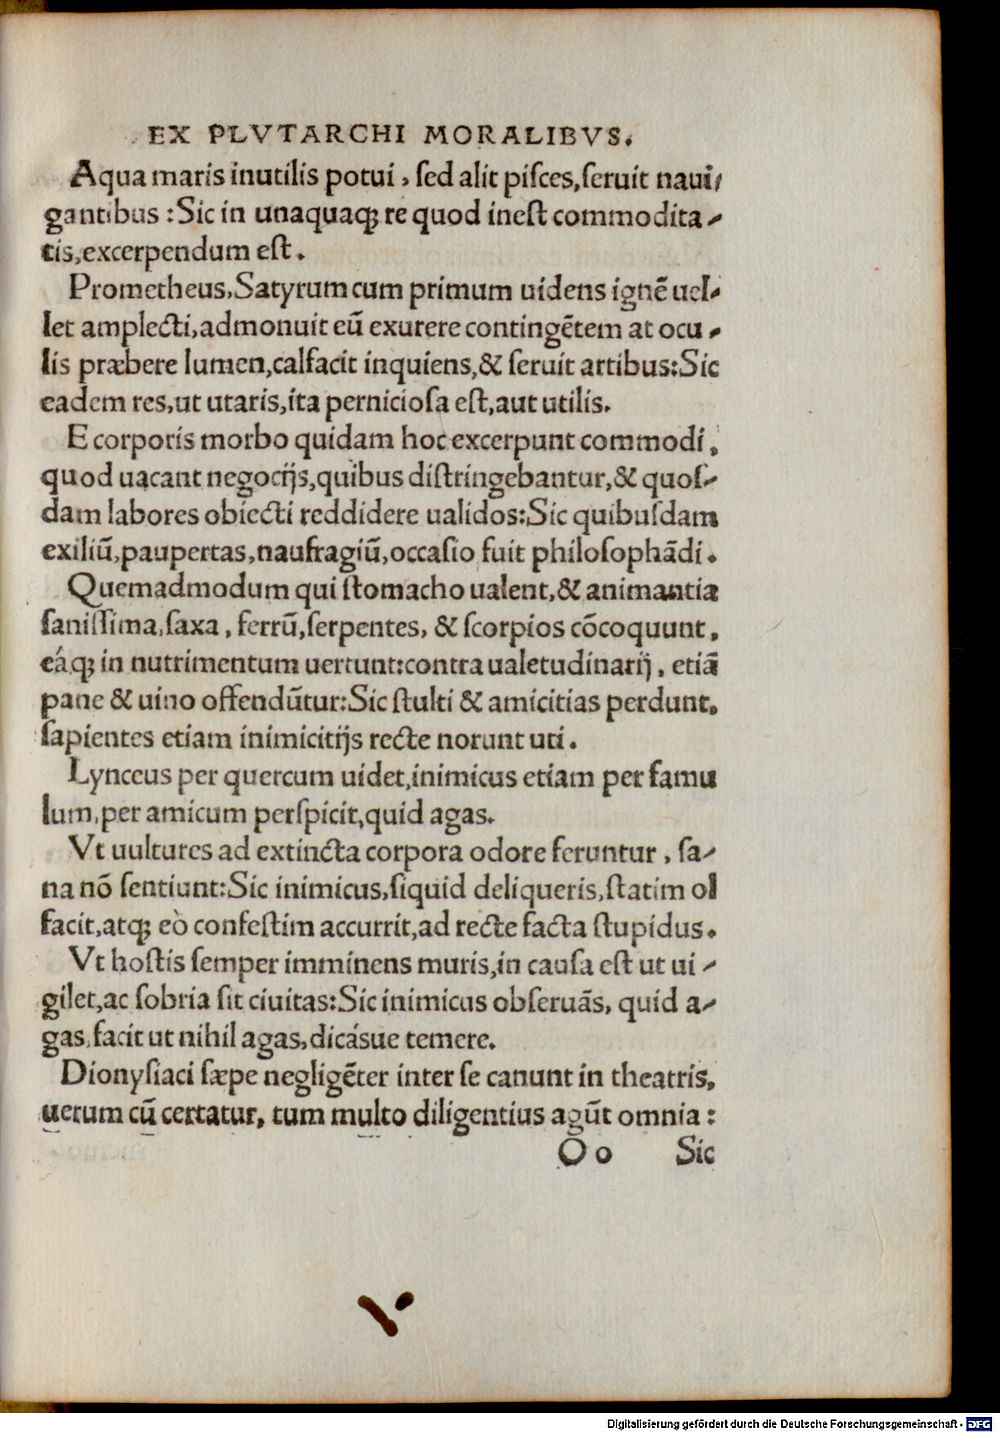 EX PLVTARCHI MORALIBVS.
Aqua maris inutilis potui, ſed alit piſces, ſeruit naui/
gantibus : Sic in unaquaq; re quod ineſt commodita -
tis, excerpendum eſt.
Prometheus, Satyrum cum primum uidens ignẽ uel-
let amplecti, admonuit eũ exurere contingẽtem at ocu -
lis præbere lumen, calfacit inquiens, & ſeruit artibus: Sic
eadem res, ut utaris, ita pernicioſa eſt, aut utilis.
E corporis morbo quidam hoc excerpunt commodi,
quod uacant negocijs, quibus diſtringebantur, & quoſ-
dam labores obiecti reddidere ualidos: Sic quibuſdam
exiliũ, paupertas, naufragiũ, occaſio fuit philoſophãdi.
Quemadmodum qui ſtomacho ualent, & animantia
ſaniſſima, ſaxa, ferrũ, ſerpentes, & ſcorpios cõcoquunt,
eáq; in nutrimentum uertunt: contra ualetudinarij, etiã
pane & uino offendũtur: Sic ſtulti & amicitias perdunt,
ſapientes etiam inimicitijs recte norunt uti.
Lynceus per quercum uidet, inimicus etiam per famu
lum, per amicum perſpicit, quid agas.
Vt uultures ad extincta corpora odore feruntur, ſa-
na nõ ſentiunt: Sic inimicus, ſiquid deliqueris, ſtatim ol
facit, atq; eò confeſtim accurrit, ad recte facta ſtupidus.
Vt hoſtis ſemper imminens muris, in cauſa eſt ut ui -
gilet, ac ſobria ſit ciuitas: Sic inimicus obſeruãs, quid a-
gas, facit ut nihil agas, dicásue temere.
Dionyſiaci ſæpe negligẽter inter ſe canunt in theatris,
uerum cũ certatur, tum multo diligentius agũt omnia :
O o Sic
Digitalisierung gefördert durch die Deutsche Forschungsgemeinschaft - DFG